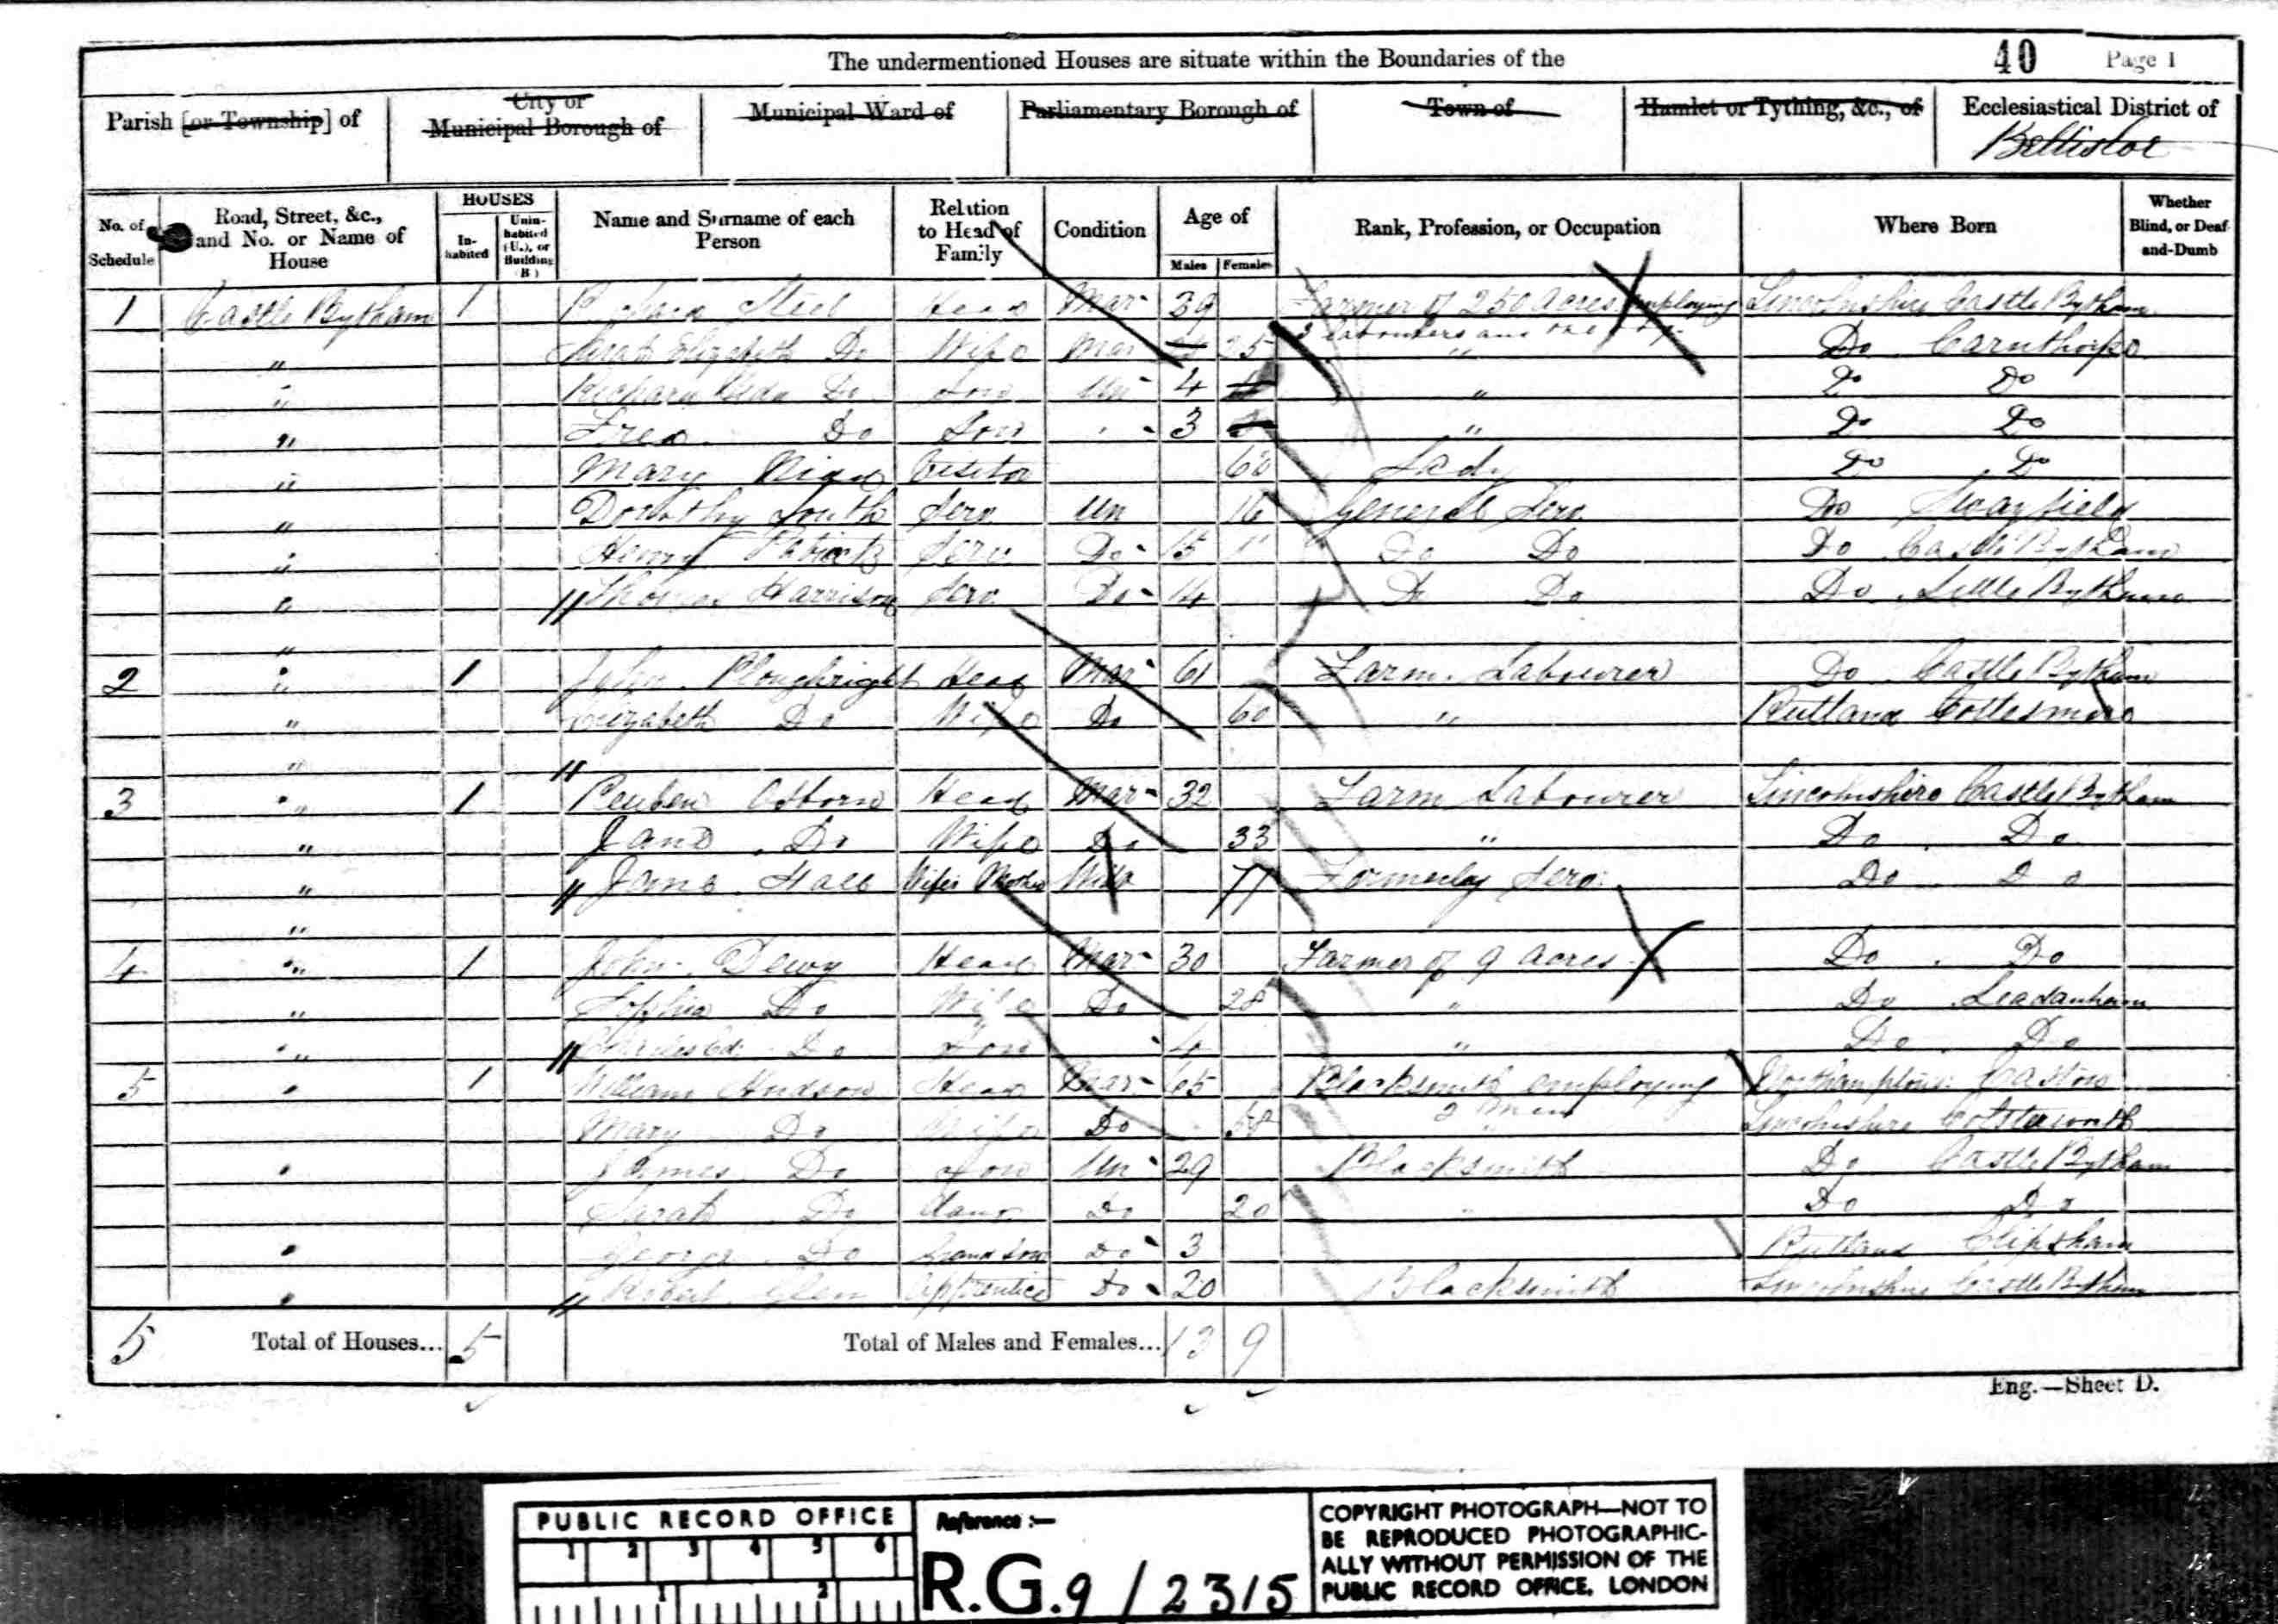 The undermentioned Houses are situate within the Boundaries of the
40 Page 1
Parish [or Township] of
City or Municipal Borough of
Municipal Ward of
Parliamentary Borough of
Town of
Hamlet or Tything, &c., of
Ecclesiastical District of
No. of Schedule
Road, Street, &c., and No. or Name of House
HOUSES
In-habited
Unin-habited (U.), or Building (B)
Name and Surname of each Person
Relation to Head of Family
Condition
Age of
Males Females
Rank, Profession, or Occupation
Where Born
Whether Blind, or Deaf-and-Dumb
1 Castle Bytham 1 Richard Steel Head Mar 39 Farmer of 250 Acres employing Lincolnshire Castle Bytham
3 labourers and one boy
" Sarah Elizabeth Do Wife Mar 25 " Do
" Richard Do Son Un 4 " Do Do
" Fred Do Son 3 " Do Do
" Mary Visitor Lady Do Do
" Dorothy South Serv Un 16 General Serv Do Swayfield
" Henry Serv Do 15 Do Do Do Castle Bytham
" Thomas Harrison Serv Do 14 Do Do Do Little Bytham
"
2 " 1 John Ploughright Head Mar 61 Farm Labourer Do Castle Bytham
" Elizabeth Do Wife Do 60 " Rutland Cottesmore
"
3 " 1 Reuben Osborn Head Mar 32 Farm Labourer Lincolnshire Castle Bytham
" Jane Do Wife Do 33 " Do Do
" Jane Hall Wifes Mother Wid 77 Formerly Serv Do Do
"
4 " 1 John Dewy Head Mar 30 Farmer of 9 Acres Do Do
" Sophia Do Wife Do 28 " Do Leadanham
" Charles Ed Do Son 4 " Do Do
5 " 1 William Hudson Head Mar 65 Blacksmith employing Northamptons Castor
2 Men
Mary Do Wife Do 58 " Lincolnshire Colsterworth
" James Do Son Un 29 Blacksmith Do Castle Bytham
Sarah Do Daur Do 20 " Do Do
" George Do Grand Son Do 3 Rutland Clipsham
" Robert Glen Apprentice Do 20 Blacksmith Lincolnshire Castle Bytham
5 Total of Houses... 5 Total of Males and Females... 13 9
Eng.—Sheet D.
PUBLIC RECORD OFFICE
1 2 3 4 5 6
1 2
Reference :—
R.G. 9/2315
COPYRIGHT PHOTOGRAPH—NOT TO
BE REPRODUCED PHOTOGRAPHIC-
ALLY WITHOUT PERMISSION OF THE
PUBLIC RECORD OFFICE, LONDON